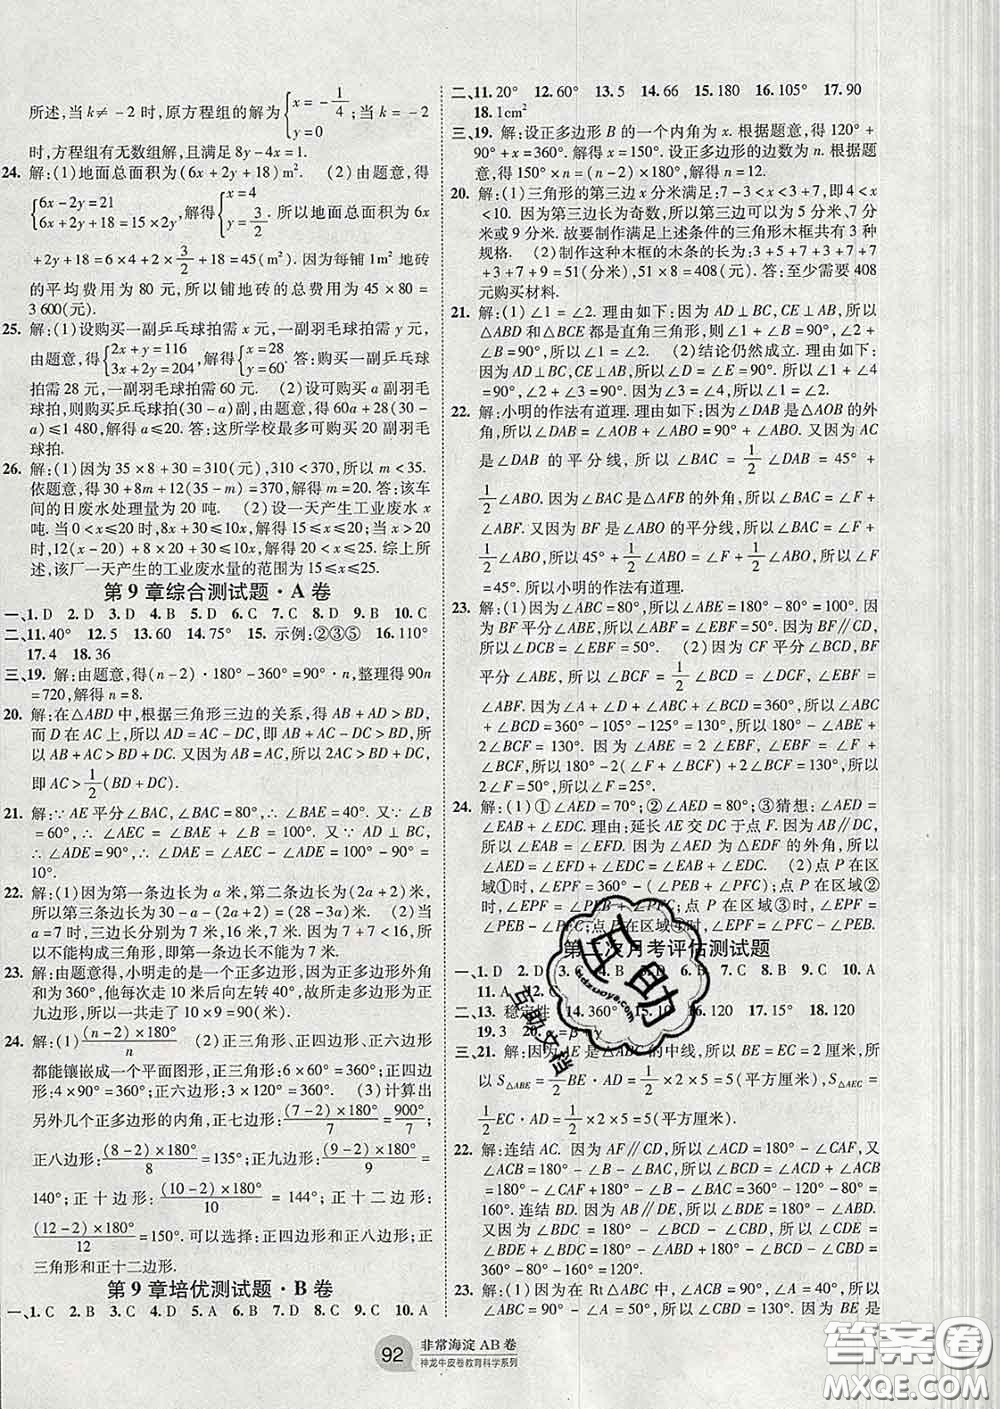 所述,当 k≠-2 时,原方程组的解为{x=-1/4 y=0;当 k=-2
时,方程组有无数组解,且满足 8y-4x=1.
24. 解:(1)地面总面积为(6x+2y+18)m². (2)由题意,得
{6x-2y=21 6x+2y+18=15×2y,解得{x=4 y=3/2. 所以地面总面积为 6x
+2y+18=6×4+2×3/2+18=45(m²). 因为每铺 1m² 地砖
的平均费用为 80 元,所以铺地砖的总费用为 45×80=
3 600(元).
25. 解:(1)设购买一副乒乓球拍需 x 元,一副羽毛球拍需 y 元,
由题意,得{2x+y=116 3x+2y=204,解得{x=28 y=60. 答:购买一副乒乓球
拍需 28 元,一副羽毛球拍需 60 元. (2)设可购买 a 副羽毛
球拍,则购买乒乓球拍(30-a)副,由题意,得 60a+28(30-
a)≤1 480,解得 a≤20. 答:这所学校最多可购买 20 副羽毛
球拍.
26. 解:(1)因为 35×8+30=310(元),310<370,所以 m<35.
依题意,得 30+8m+12(35-m)=370,解得 m=20. 答:该车
间的日废水处理量为 20 吨. (2)设一天产生工业废水 x
吨. 当 0<x≤20 时,8x+30≤10x,解得 15≤x≤20;当 x>20
时,12(x-20)+8×20+30≤10x,解得 20<x≤25. 综上所
述,该厂一天产生的工业废水量的范围为 15≤x≤25.
第 9 章综合测试题·A 卷
一、1. D 2. D 3. D 4. D 5. C 6. D 7. C 8. D 9. B 10. C
二、11. 40° 12. 5 13. 60 14. 75° 15. 示例:②③⑤ 16. 110°
17. 4 18. 36
三、19. 解:由题意,得(n-2)·180°-360°=360°,整理得 90n
=720,解得 n=8.
20. 解:在△ABD 中,根据三角形三边的关系,得 AB+AD>BD,
而 D 在 AC 上,所以 AD=AC-DC,即 AB+AC-DC>BD,所
以 AB+AC>BD+DC. 又因为 AB=AC,所以 2AC>BD+DC,
即 AC>1/2(BD+DC).
21. 解:∵AE 平分∠BAC,∠BAC=80°,∴∠BAE=40°. 又∵∠B
=60°,∴∠AEC=∠BAE+∠B=100°. 又∵AD⊥BC,
∴∠ADE=90°,∴∠DAE=∠AEC-∠ADE=100°-90°=
10°.
22. 解:(1)因为第一条边长为 a 米,第二条边长为(2a+2)米,
所以第三条边长为 30-a-(2a+2)=(28-3a)米. (2)当
a=7 时,三边长分别为 7 米,16 米,7 米. 因为 7+7<16,所以
不能构成三角形,即第一条边长不能为 7 米.
23. 解:因为由题意,得小明走的是一个正多边形,该正多边形外角
和为 360°,他每次走 10 米后向左转 40°,所以该图形为正
九边形,所以一共走了 10×9=90(米).
24. 解:(1)(n-2)×180°/n (2)正三角形、正四边形、正六边形
都能镶嵌成一个平面图形,正三角形:6×60°=360°;正四边
形:4×90°=360°;正六边形:3×120°=360°. (3)计算出
另外几个正多边形的内角,正七边形:(7-2)×180°/7=900°/7;
正八边形:(8-2)×180°/8=135°;正九边形:(9-2)×180°/9=
140°;正十边形:(10-2)×180°/10=144°;正十二边形:
(12-2)×180°/12=150°. 可以选择:正四边形和正八边形,正
三角形和正十二边形.
第 9 章培优测试题·B 卷
一、1. C 2. B 3. C 4. D 5. A 6. B 7. C 8. B 9. C 10. A
二、11. 50° 12. 60° 13. 5 14. 66° 15. 180 16. 105° 17. 90
18. 1cm²
三、19. 解:设正多边形 B 的一个内角为 x. 根据题意,得 120°+
90°+x=360°. 解得 x=150°. 设正多边形的边数为 n. 根据题
意,得 150°×n=(n-2)×180°. 解得 n=12.
20. 解:(1)三角形的第三边 x 分米满足:7-3<x<3+7,即 4<x
<10. 因为第三边长为奇数,所以第三边可以为 5 分米,7 分
米或 9 分米. 故要制作满足上述条件的三角形木框共有 3 种
规格. (2)制作这种木框的木条的长为:3+5+7+3+7+7
+3+7+9=51(分米),51×8=408(元). 答:至少需要 408
元购买材料.
21. 解:(1)∠1=∠2. 理由如下:因为 AD⊥BC,CE⊥AB,所以
△ABD 和△BCE 都是直角三角形,所以∠1+∠B=90°,∠2+
∠B=90°,所以∠1=∠2. (2)结论仍然成立. 理由如下:因
为 AD⊥BC,CE⊥AB,所以∠D=∠E=90°. 所以∠1+∠4
=90°,∠2+∠3=90°. 因为∠3=∠4,所以∠1=∠2.
22. 解:小明的作法有道理. 理由如下:因为∠DAB 是△AOB 的外
角,所以∠DAB=∠AOB+∠ABO=90°+∠ABO. 又因为 AC
是∠DAB 的平分线,所以∠BAC=1/2∠DAB=45°+
1/2∠ABO. 因为∠BAC 是△AFB 的外角,所以∠BAC=∠F+
∠ABF. 又因为 BF 是∠ABO 的平分线,所以∠ABF=
1/2∠ABO,所以 45°+1/2∠ABO=∠F+∠ABF=∠F+
1/2∠ABO,所以∠F=45°,所以小明的作法有道理.
23. 解:(1)因为∠ABC=80°,所以∠ABE=180°-80°=100°. 因为
BF 平分∠ABE,所以∠EBF=1/2∠ABE=50°. 因为 BF∥CD,
所以∠BCD=∠EBF=50°. (2)因为 CF 平分∠BCD,BF 平
分∠ABE,所以∠BCF=1/2∠BCD,∠EBF=1/2∠ABE.
因为∠A+∠D+∠ABC+∠BCD=360°,所以∠ABC+
∠BCD=360°-105°-125°=130°,所以 180°-∠ABE+
2∠BCF=130°. 因为∠ABE=2∠EBF,∠EBF=∠F+
∠BCF,所以 180°-2(∠F+∠BCF)+2∠BCF=130°,所以
180°-2∠F=130°,所以∠F=25°.
24. 解:(1)①∠AED=70°;②∠AED=80°;③猜想:∠AED=
∠EAB+∠EDC. 理由:延长 AE 交 DC 于点 F. 因为 AB∥DC,
所以∠EAB=∠EFD. 因为∠AED 为△EDF 的外角,所以
∠AED=∠EFD+∠EDC=∠EAB+∠EDC. (2)点 P 在区
域①时,∠EPF=360°-(∠PEB+∠PFC);点 P 在区域②
时,∠EPF=∠PEB+∠PFC;点 P 在区域③时,∠EPF=
∠PEB-∠PFC;点 P 在区域④时,∠EPF=∠PFC-∠PEB.
月考评估测试题
一、1. D 2. D 3. 4. 5. D 6. B 7. C 8. B 9. C 10. A
11. A 12. C
二、13. 稳定性 14. 360° 15. 10 16. 120 17. 15° 18. 120
19. 3 20.
三、21. 解:因为 AE 是△ABC 的中线,所以 BE=EC=2 厘米,所
以 S△ABE=1/2BE·AD=1/2×2×5=5(平方厘米),S△AEC=
1/2EC·AD=1/2×2×5=5(平方厘米).
22. 解:连结 AC. 因为 AF∥CD,所以∠ACD=180°-∠CAF,又
∠ACB=180°-∠B-∠BAC,所以∠BCD=∠ACD+∠ACB
=180°-∠CAF+180°-∠B-∠BAC=360°-120°-80°=
160°. 连结 BD. 因为 AB∥DE,所以∠BDE=180°-∠ABD.
又因为∠BDC=180°-∠BCD-∠CBD,所以∠CDE=
∠BDE+∠BDC=180°-∠ABD+180°-∠BCD-∠CBD=
360°-120°-160°=80°.
23. 解:(1)因为在 Rt△ABC 中,∠ACB=90°,∠A=40°,所以
∠ABC=90°-∠A=50°,所以∠CBD=130°. 因为 BE 是
92 非常海淀 AB 卷
神龙牛皮卷教育科学系列
互助
zuoye.com
互助文档
答案圈
MXQE.COM